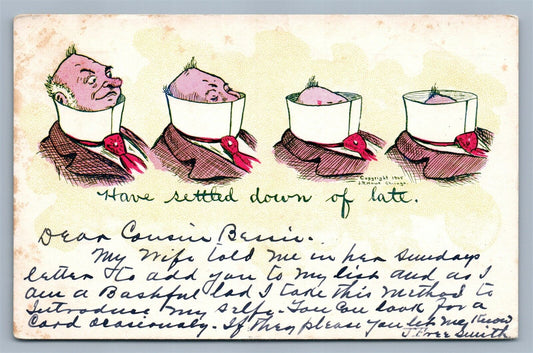 Copyright 1905
Chicago.
Have settled down of late.
Dear Cousin Bessie.
My Wife told me in her Sundays
letter to add you to my list and as I
am a Bashful lad I take this method to
Introduce my selfe. You can look for a
Card ocasionaly. If they please you let me know
J. Bree Smith